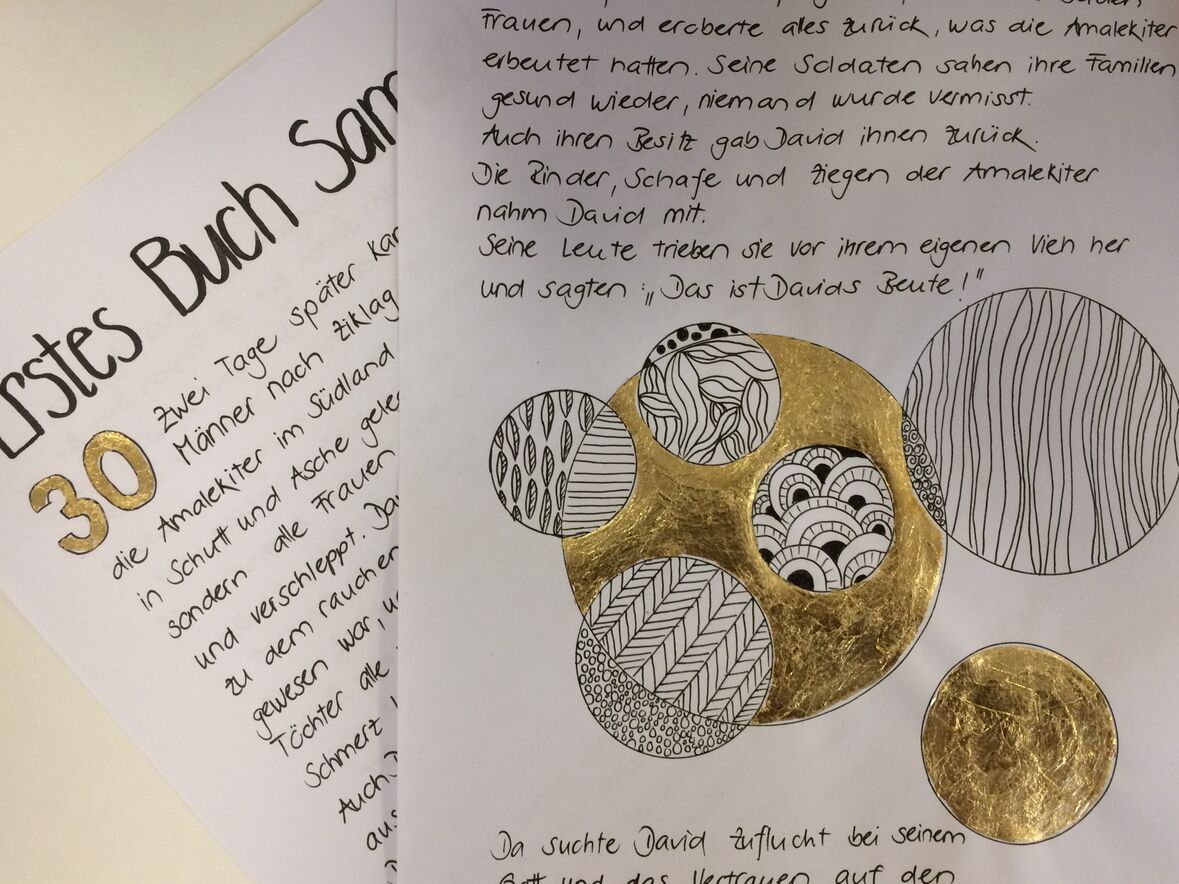 Erstes Buch Sam
30 Zwei Tage später kam
Männer nach Ziklag
die Amalekiter im Südland
in Schutt und Asche geleg
sondern alle Frauen
und verschleppt. Da
zu dem rauchen
gewesen war, u
Töchter alle
Schmerz
Auch D
aus
Frauen, und eroberte alles zurück, was die Amalekiter
erbeutet hatten. Seine Soldaten sahen ihre Familien
gesund wieder, niemand wurde vermisst.
Auch ihren Besitz gab David ihnen zurück.
Die Rinder, Schafe und Ziegen der Amalekiter
nahm David mit.
Seine Leute trieben sie vor ihrem eigenen Vieh her
und sagten: „Das ist Davids Beute!"
Da suchte David Zuflucht bei seinem
Gott und das Vertrauen auf den